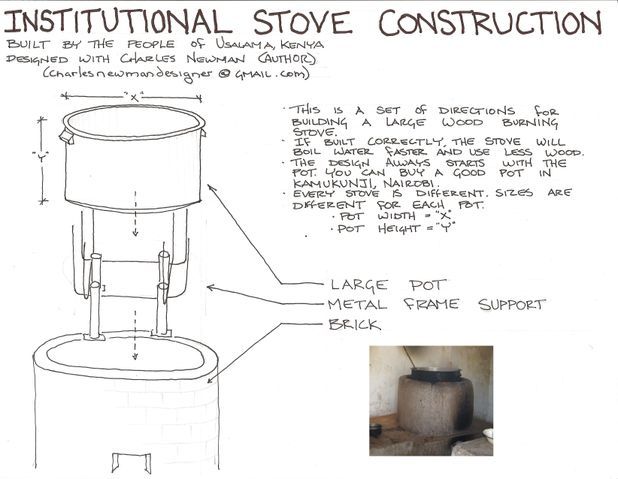 INSTITUTIONAL STOVE CONSTRUCTION
BUILT BY THE PEOPLE OF USALAMA, KENYA
DESIGNED WITH CHARLES NEWMAN (AUTHOR)
(charlesnewmandesigner@gmail.com)
"X"
"Y"
· THIS IS A SET OF DIRECTIONS FOR
BUILDING A LARGE WOOD BURNING
STOVE.
· IF BUILT CORRECTLY, THE STOVE WILL
BOIL WATER FASTER AND USE LESS WOOD.
· THE DESIGN ALWAYS STARTS WITH THE
POT. YOU CAN BUY A GOOD POT IN
KAMUKUNJI, NAIROBI.
· EVERY STOVE IS DIFFERENT. SIZES ARE
DIFFERENT FOR EACH POT.
· POT WIDTH = "X"
· POT HEIGHT = "Y"
LARGE POT
METAL FRAME SUPPORT
BRICK